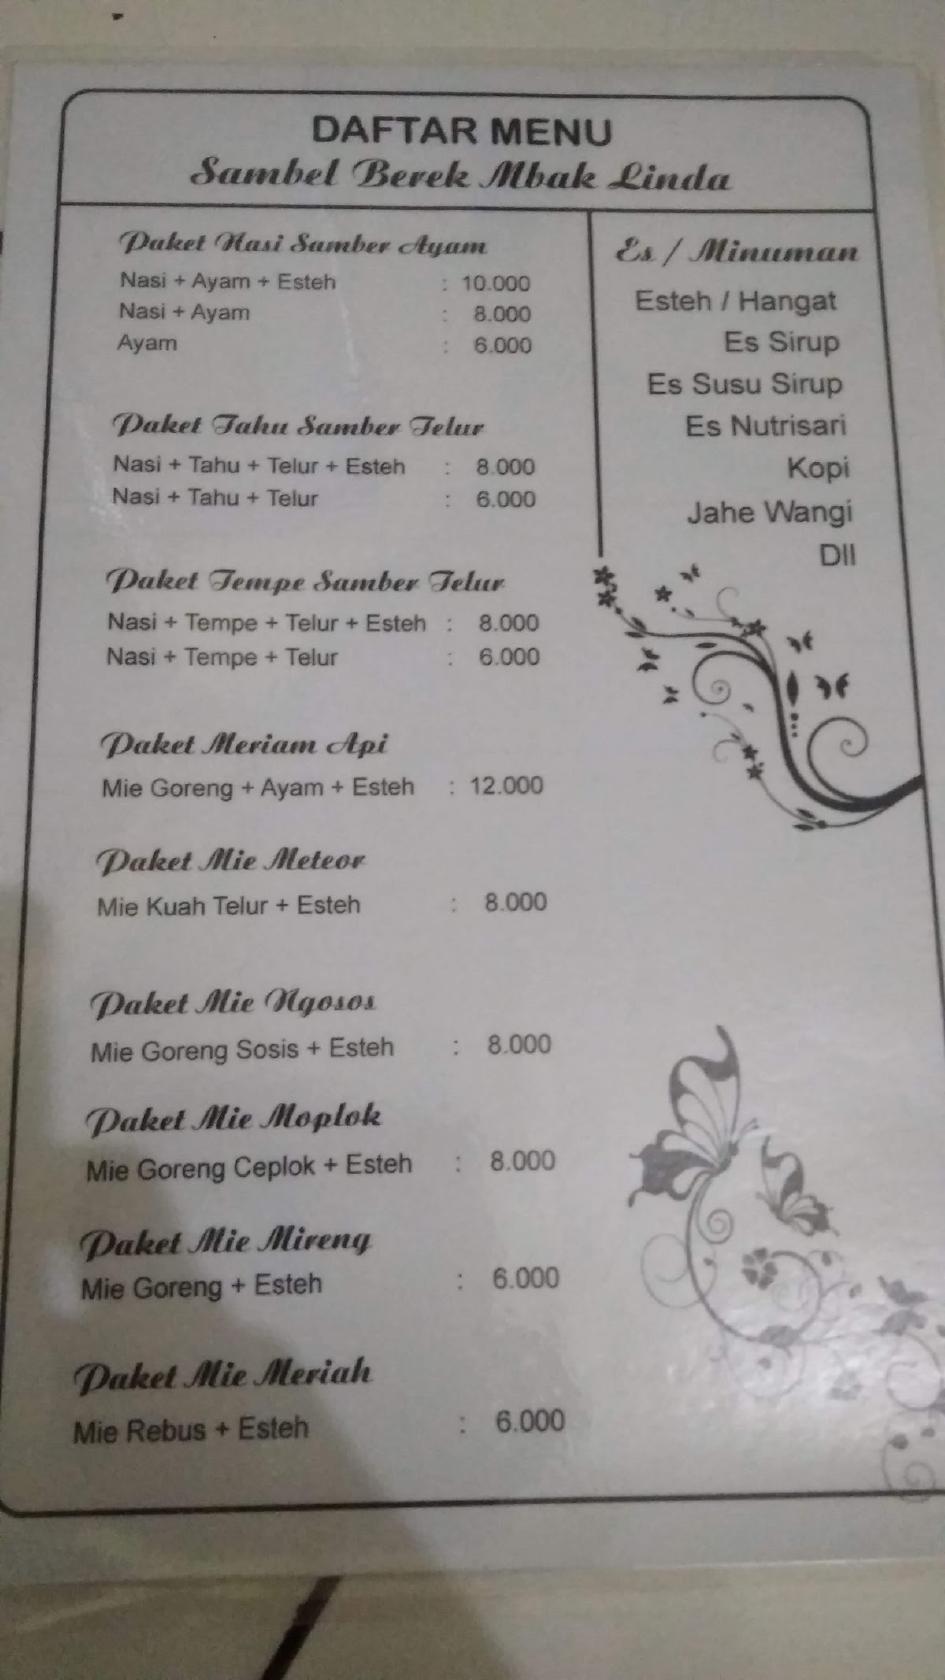 DAFTAR MENU
Sambel Berek Mbak Linda
Paket Nasi Samber Ayam
Nasi + Ayam + Esteh : 10.000
Nasi + Ayam : 8.000
Ayam : 6.000
Paket Tahu Samber Telur
Nasi + Tahu + Telur + Esteh : 8.000
Nasi + Tahu + Telur : 6.000
Paket Tempe Samber Telur
Nasi + Tempe + Telur + Esteh : 8.000
Nasi + Tempe + Telur : 6.000
Paket Meriam Api
Mie Goreng + Ayam + Esteh : 12.000
Paket Mie Meteor
Mie Kuah Telur + Esteh : 8.000
Paket Mie Ngosos
Mie Goreng Sosis + Esteh : 8.000
Paket Mie Moplok
Mie Goreng Ceplok + Esteh : 8.000
Paket Mie Mireng
Mie Goreng + Esteh : 6.000
Paket Mie Meriah
Mie Rebus + Esteh : 6.000
Es / Minuman
Esteh / Hangat
Es Sirup
Es Susu Sirup
Es Nutrisari
Kopi
Jahe Wangi
Dll